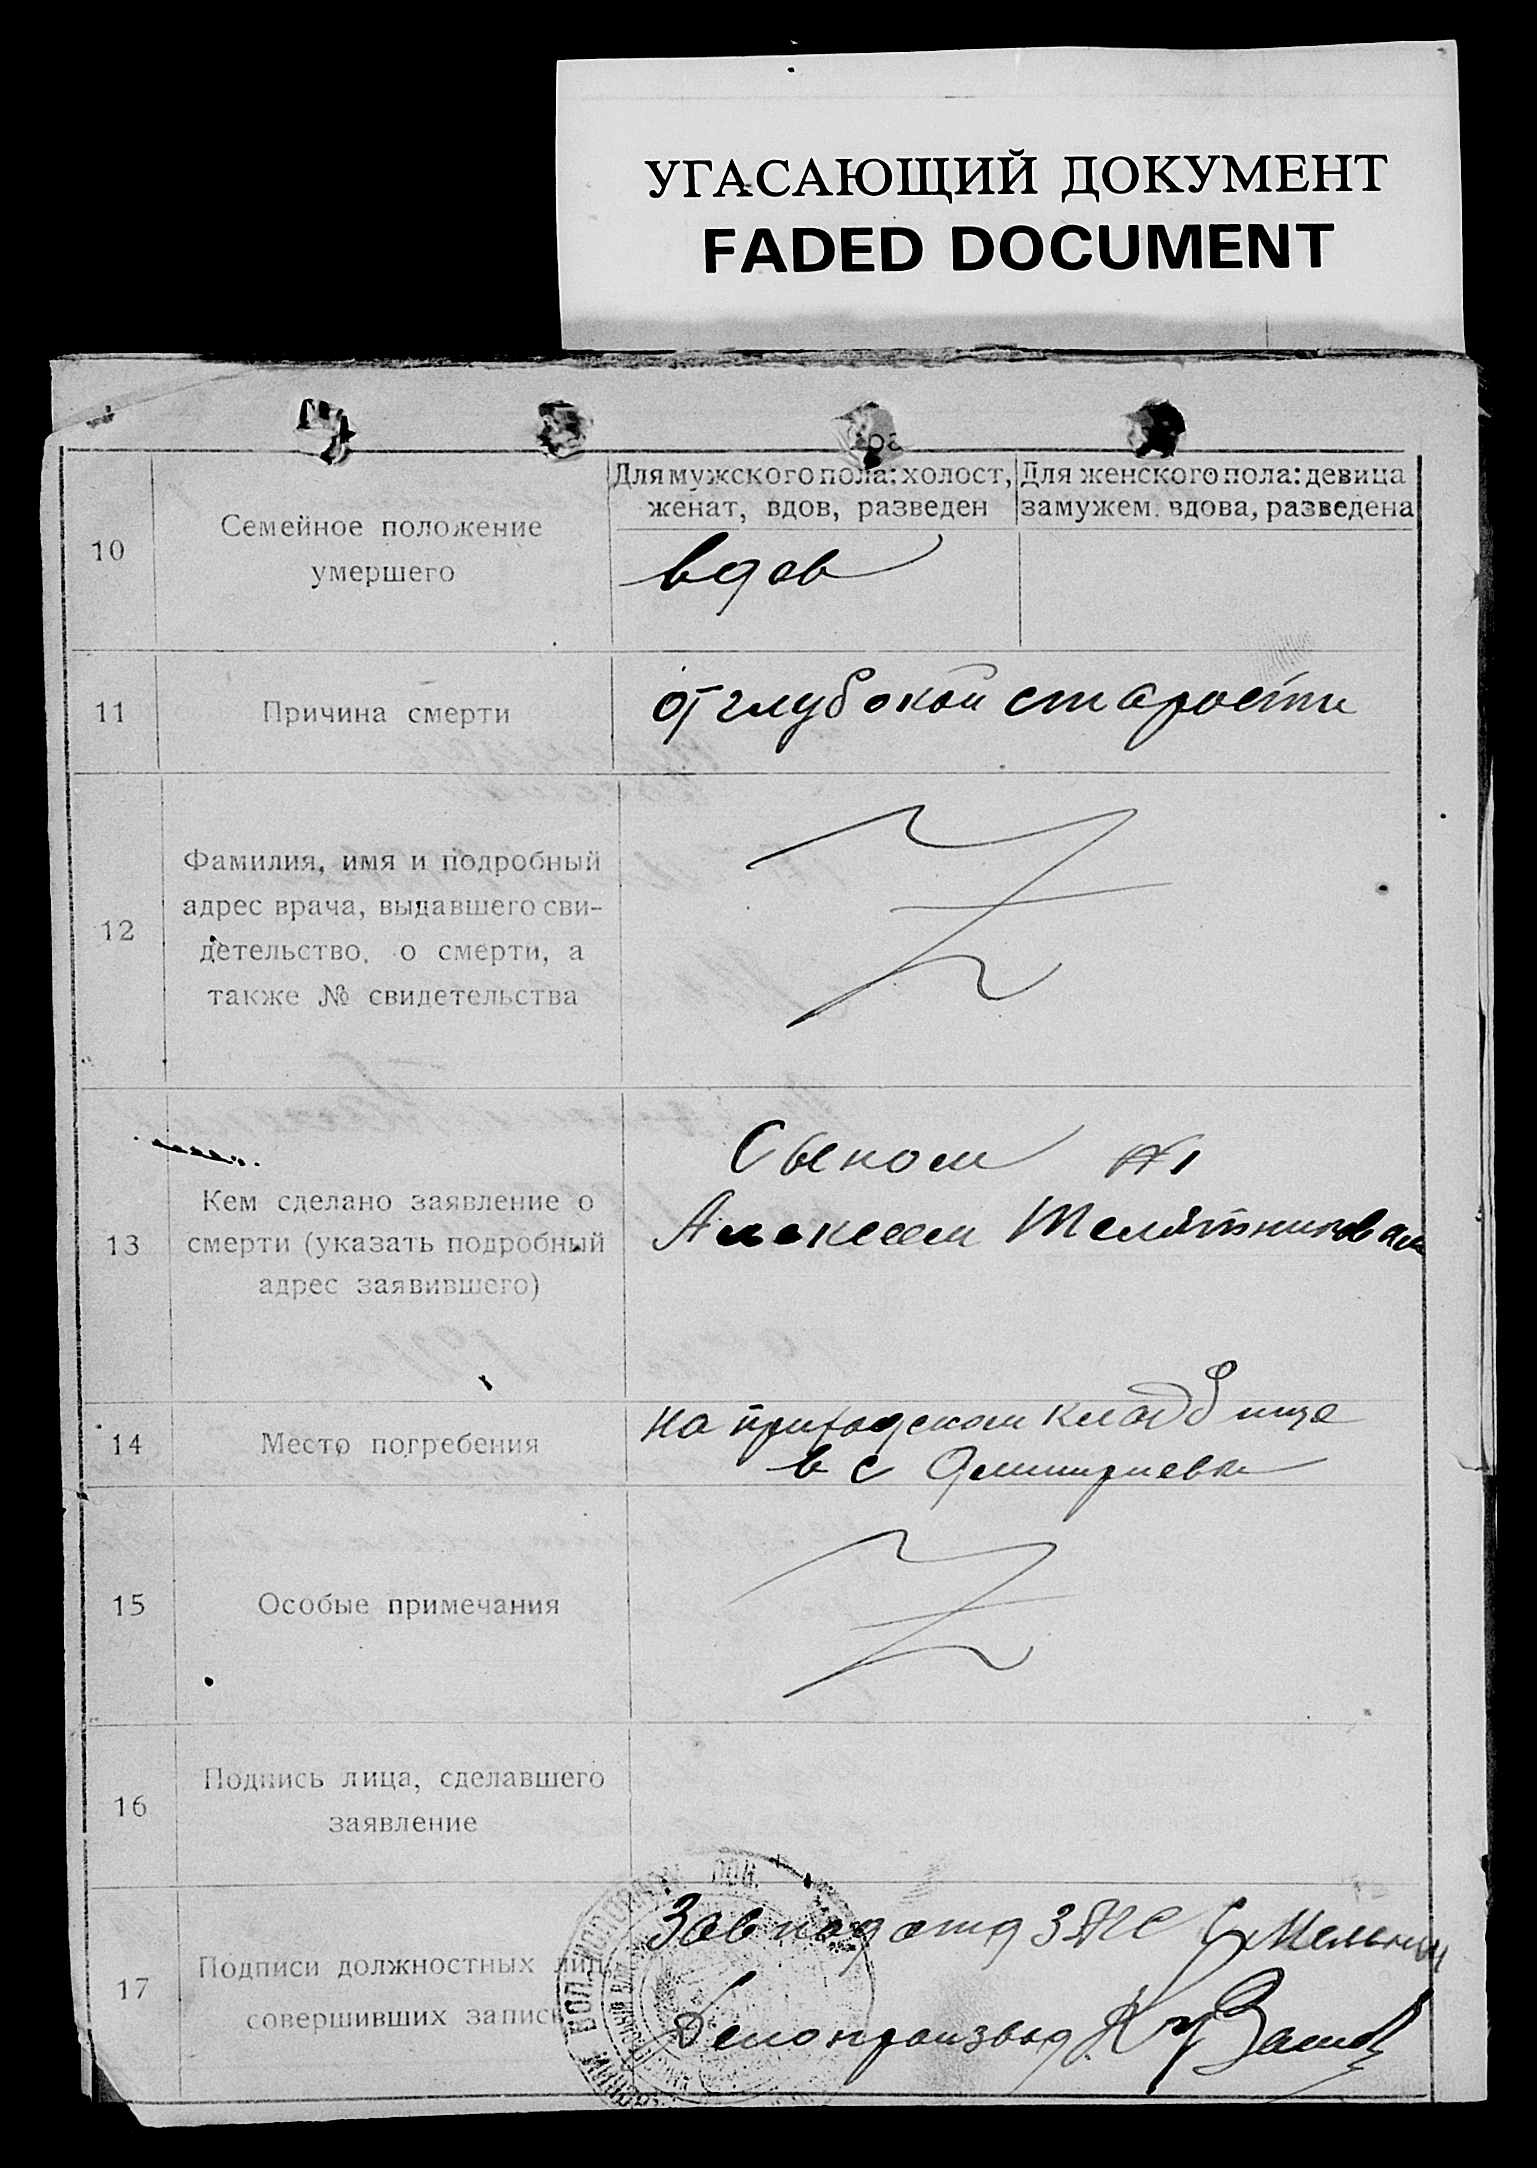 УГАСАЮЩИЙ ДОКУМЕНТ
FADED DOCUMENT
10
Семейное положение
умершего
Для мужского пола: холост,
женат, вдов, разведен
Для женского пола: девица
замужем. вдова, разведена
вдов
11
Причина смерти
от глубокой старости
12
Фамилия, имя и подробный
адрес врача, выдавшего сви-
детельство, о смерти, а
также № свидетельства
13
Кем сделано заявление о
смерти (указать подробный
адрес заявившего)
Сыном №1
Алексеем Телятниковам
14
Место погребения
на приходском кладбище
в с Дмитриевке
15
Особые примечания
16
Подпись лица, сделавшего
заявление
17
Подписи должностных лиц,
совершивших запись
Зав подотд ЗАГС
Делопроизвод